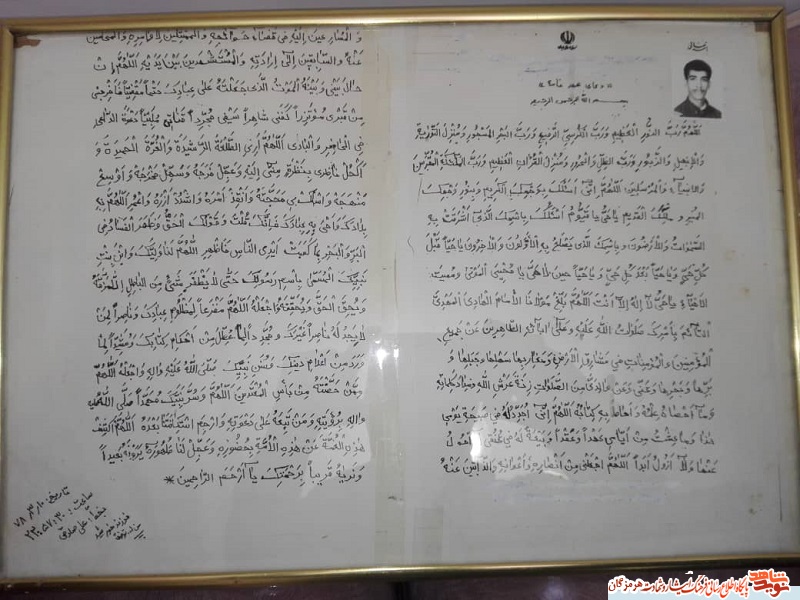 « دعای عهد
بسم الله الرحمن الرحیم
اَللّهُمَّ رَبَّ النُّورِ الْعَظیمِ وَ رَبَّ الْكُرْسِیِّ الرَّفیعِ وَ رَبَّ الْبَحْرِ الْمَسْجُورِ وَ مُنْزِلَ التَّوْریةِ
وَ الْاِنْجیلِ وَ الزَّبُورِ وَ رَبَّ الظِّلِّ وَ الْحَرُورِ وَ مُنْزِلَ الْقُرْآنِ الْعَظیمِ وَ رَبَّ الْمَلائِكَةِ الْمُقَرَّبینَ
وَ الْاَنْبِیاءِ وَ الْمُرْسَلینَ اَللّهُمَّ اِنّی اَسْئَلُكَ بِوَجْهِكَ الْكَریمِ وَ بِنُورِ وَجْهِكَ
الْمُنیرِ وَ مُلْكِكَ الْقَدیمِ یا حَیُّ یا قَیُّومُ اَسْئَلُكَ بِاسْمِكَ الَّذی اَشْرَقَتْ بِهِ
السَّمواتُ وَ الْاَرَضُونَ وَ بِاسْمِكَ الَّذی یَصْلَحُ بِهِ الْاَوَّلُونَ وَ الْاخِرُونَ یا حَیّاً قَبْلَ
كُلِّ حَیٍّ وَ یا حَیّاً بَعْدَ كُلِّ حَیٍّ وَ یا حَیّاً حینَ لا حَیَّ یا مُحْیِیَ الْمَوْتی وَ مُمیتَ
الْاَحْیاءِ یا حَیُّ لا اِلهَ اِلاّ اَنْتَ اَللّهُمَّ بَلِّغْ مَوْلانَا الْاِمامَ الْهادِیَ الْمَهْدِیَّ
الْقائِمَ بِاَمْرِكَ صَلَواتُ اللّهِ عَلَیْهِ وَ عَلی ابائِهِ الطّاهِرینَ عَنْ جَمیعِ
الْمُؤْمِنینَ وَ الْمُؤْمِناتِ فی مَشارِقِ الْاَرْضِ وَ مَغارِبِها سَهْلِها وَ جَبَلِها وَ
بَرِّها وَ بَحْرِها وَ عَنّی وَ عَنْ والِدَیَّ مِنَ الصَّلَواتِ زِنَةَ عَرْشِ اللّهِ وَ مِدادَ كَلِماتِهِ
وَ ما اَحْصاهُ عِلْمُهُ وَ اَحاطَ بِهِ كِتابُهُ اَللّهُمَّ اِنّی اُجَدِّدُ لَهُ فی صَبیحَةِ یَوْمی
هذا وَ ما عِشْتُ مِنْ اَیّامی عَهْداً وَ عَقْداً وَ بَیْعَةً لَهُ فی عُنُقی لا اَحُولُ
عَنْها وَ لا اَزُولُ اَبَداً اَللّهُمَّ اجْعَلْنی مِنْ اَنْصارِهِ وَ اَعْوانِهِ وَ الذّابّینَ عَنْهُ
وَ الْمُسارِعینَ اِلَیْهِ فی قَضاءِ حَوائِجِهِ وَ الْمُمْتَثِلینَ لِاَوامِرِهِ وَ الْمُحامینَ
عَنْهُ وَ السّابِقینَ اِلی اِرادَتِهِ وَ الْمُسْتَشْهَدینَ بَیْنَ یَدَیْهِ اَللّهُمَّ اِنْ
حالَ بَیْنی وَ بَیْنَهُ الْمَوْتُ الَّذی جَعَلْتَهُ عَلی عِبادِكَ حَتْماً مَقْضِیّاً فَاَخْرِجْنی
مِنْ قَبْری مُؤْتَزِراً كَفَنی شاهِراً سَیْفی مُجَرِّداً قَناتی مُلَبِّیاً دَعْوَةَ الدّاعی
فِی الْحاضِرِ وَ الْبادی اَللّهُمَّ اَرِنِی الطَّلْعَةَ الرَّشیدَةَ وَ الْغُرَّةَ الْحَمیدَةَ وَ
اكْحُلْ ناظِری بِنَظْرَةٍ مِنّی اِلَیْهِ وَ عَجِّلْ فَرَجَهُ وَ سَهِّلْ مَخْرَجَهُ وَ اَوْسِعْ
مَنْهَجَهُ وَ اسْلُكْ بی مَحَجَّتَهُ وَ اَنْفِذْ اَمْرَهُ وَ اشْدُدْ اَزْرَهُ وَ اعْمُرِ اللّهُمَّ بِهِ
بِلادَكَ وَ اَحْیِ بِهِ عِبادَكَ فَاِنَّكَ قُلْتَ وَ قَوْلُكَ الْحَقُّ ظَهَرَ الْفَسادُ فِی
الْبَرِّ وَ الْبَحْرِ بِما كَسَبَتْ اَیْدِی النّاسِ فَاَظْهِرِ اللّهُمَّ لَنا وَلِیَّكَ وَ ابْنَ بِنْتِ
نَبِیِّكَ الْمُسَمّی بِاسْمِ رَسُولِكَ حَتّی لا یَظْفَرَ بِشَیْءٍ مِنَ الْباطِلِ اِلاّ مَزَّقَهُ
وَ یُحِقَّ الْحَقَّ وَ یُحَقِّقَهُ وَ اجْعَلْهُ اَللّهُمَّ مَفْزَعاً لِمَظْلُومِ عِبادِكَ وَ ناصِراً لِمَنْ
لا یَجِدُ لَهُ ناصِراً غَیْرَكَ وَ مُجَدِّداً لِما عُطِّلَ مِنْ اَحْكامِ كِتابِكَ وَ مُشَیِّداً لِما
وَرَدَ مِنْ اَعْلامِ دینِكَ وَ سُنَنِ نَبِیِّكَ صَلَّی اللّهُ عَلَیْهِ وَ الِهِ وَ اجْعَلْهُ اَللّهُمَّ
مِمَّنْ حَصَّنْتَهُ مِنْ بَأْسِ الْمُعْتَدینَ اَللّهُمَّ وَ سُرَّ نَبِیَّكَ مُحَمَّداً صَلَّی اللّهُ عَلَیْهِ
وَ الِهِ بِرُؤْیَتِهِ وَ مَنْ تَبِعَهُ عَلی دَعْوَتِهِ وَ ارْحَمِ اسْتِكانَتَنا بَعْدَهُ اَللّهُمَّ اكْشِفْ
هذِهِ الْغُمَّةَ عَنْ هذِهِ الْاُمَّةِ بِحُضُورِهِ وَ عَجِّلْ لَنا ظُهُورَهُ یَرَوْنَهُ بَعیداً
وَ نَریهُ قَریباً بِرَحْمَتِكَ یا اَرْحَمَ الرّاحِمینَ *
تاریخ: ۷۸/۳/۱۰
ساعت: ۲۲:۵۷:۳۰
نوید شاهد پایگاه اطلاع رسانی فرهنگ ایثار و شهادت هرمزگان